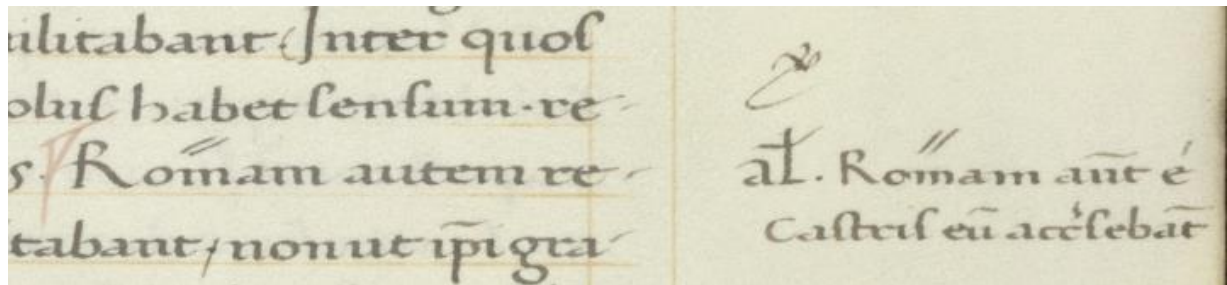 ilitabant. Inter quoſ
oluſ habet ſenſum · re-
s. Romam autem re-
tabant, non ut ip̄i gra-
aƚ. Romam aūt é
Caſtriſ eū accſebāt